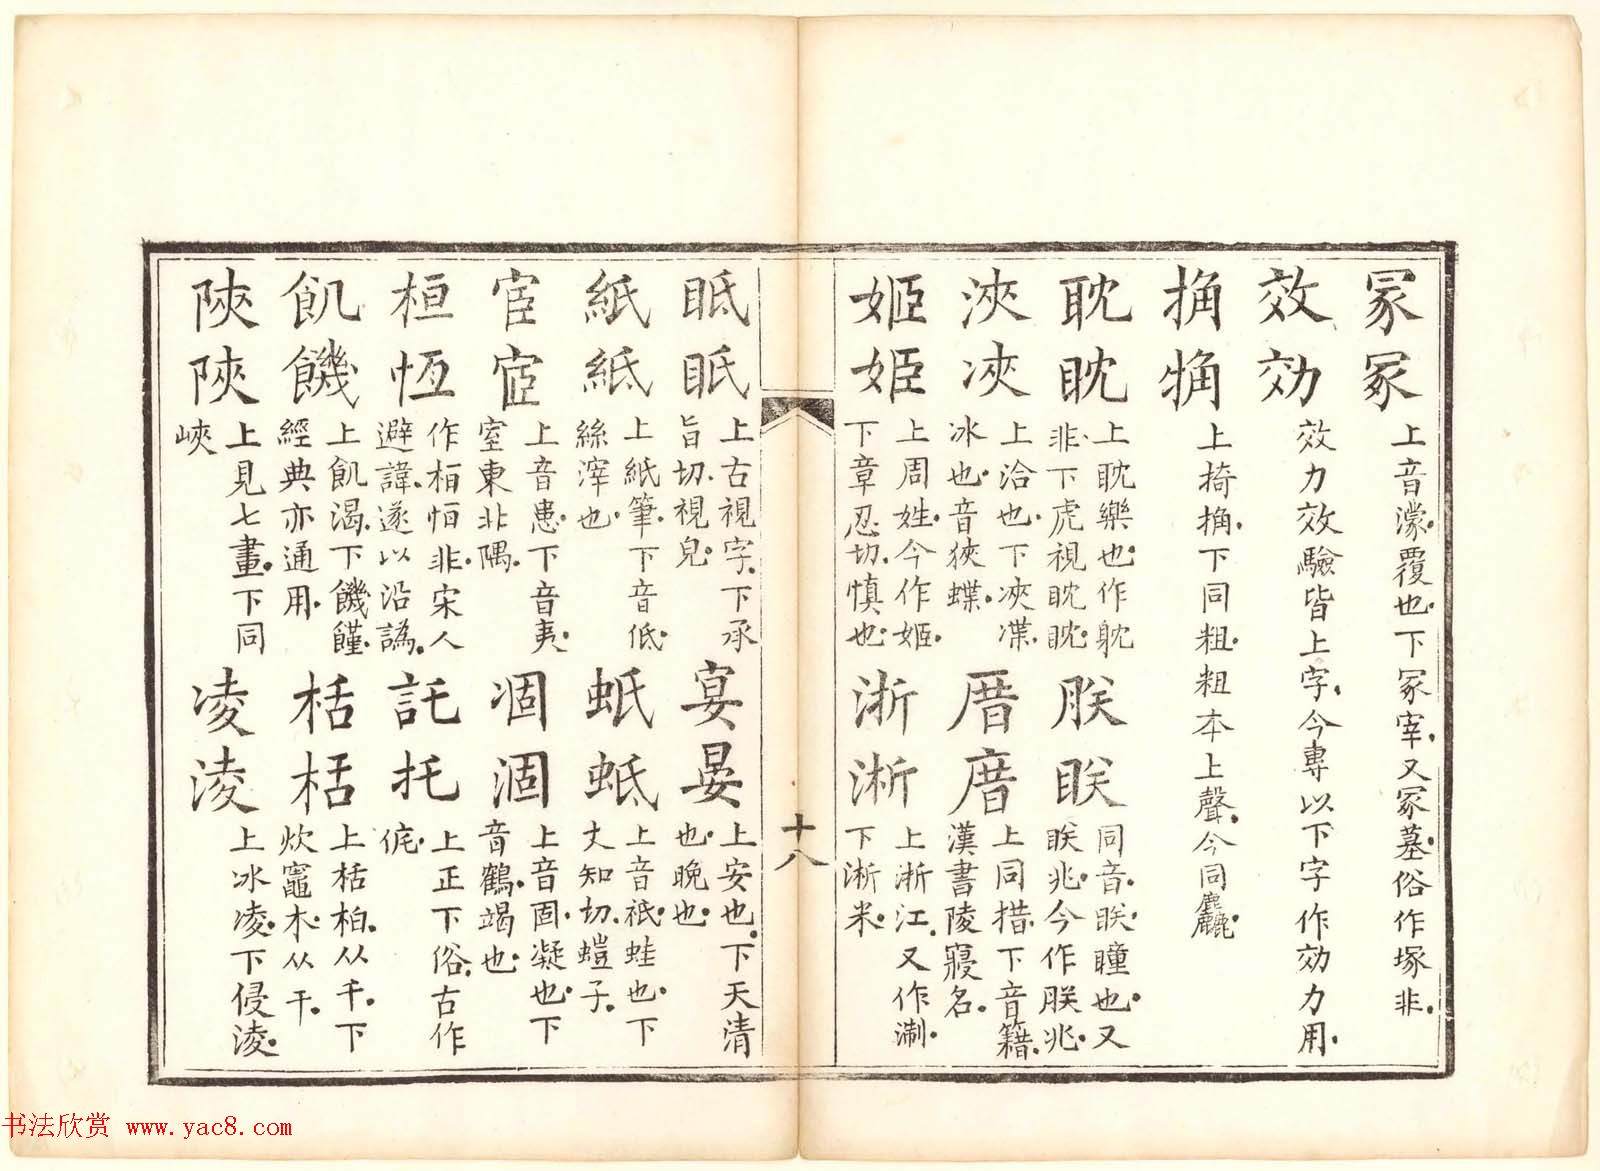 冡冢
上音濛覆也下冢宰又冢墓俗作塚非
效効
效力效驗皆上字今專以下字作効力用
捔觕
上掎捔下同粗粗本上聲今同麤
耽眈
上耽樂也作躭
非下虎視眈眈
朕眹
同音眹瞳也又
眹兆今作朕兆
浹浹
上洽也下浹渫
冰也音狹蝶
厝厝
上同措下音籍
漢書陵寢名
姬姫
上周姓今作姬
下章忍切慎也
浙淅
上浙江又作淛
下淅米
十八
眡眂
上古視字下承
旨切視皃
宴晏
上安也下天清
也晚也
紙紙
上紙筆下音低
絲滓也
蚔蚳
上音祇蛙也下
丈知切螘子
宦宧
上音患下音夷
室東北隅
凅涸
上音固凝也下
音鶴竭也
桓恆
作栢恒非宋人
避諱遂以沿譌
託托
上正下俗古作
㑜
飢饑
上飢渴下饑饉
經典亦通用
栝栝
上栝柏从千下
炊竈木从干
陝陜
上見七畫下同
峽
凌淩
上冰凌下侵淩
书法欣赏 www.yac8.com